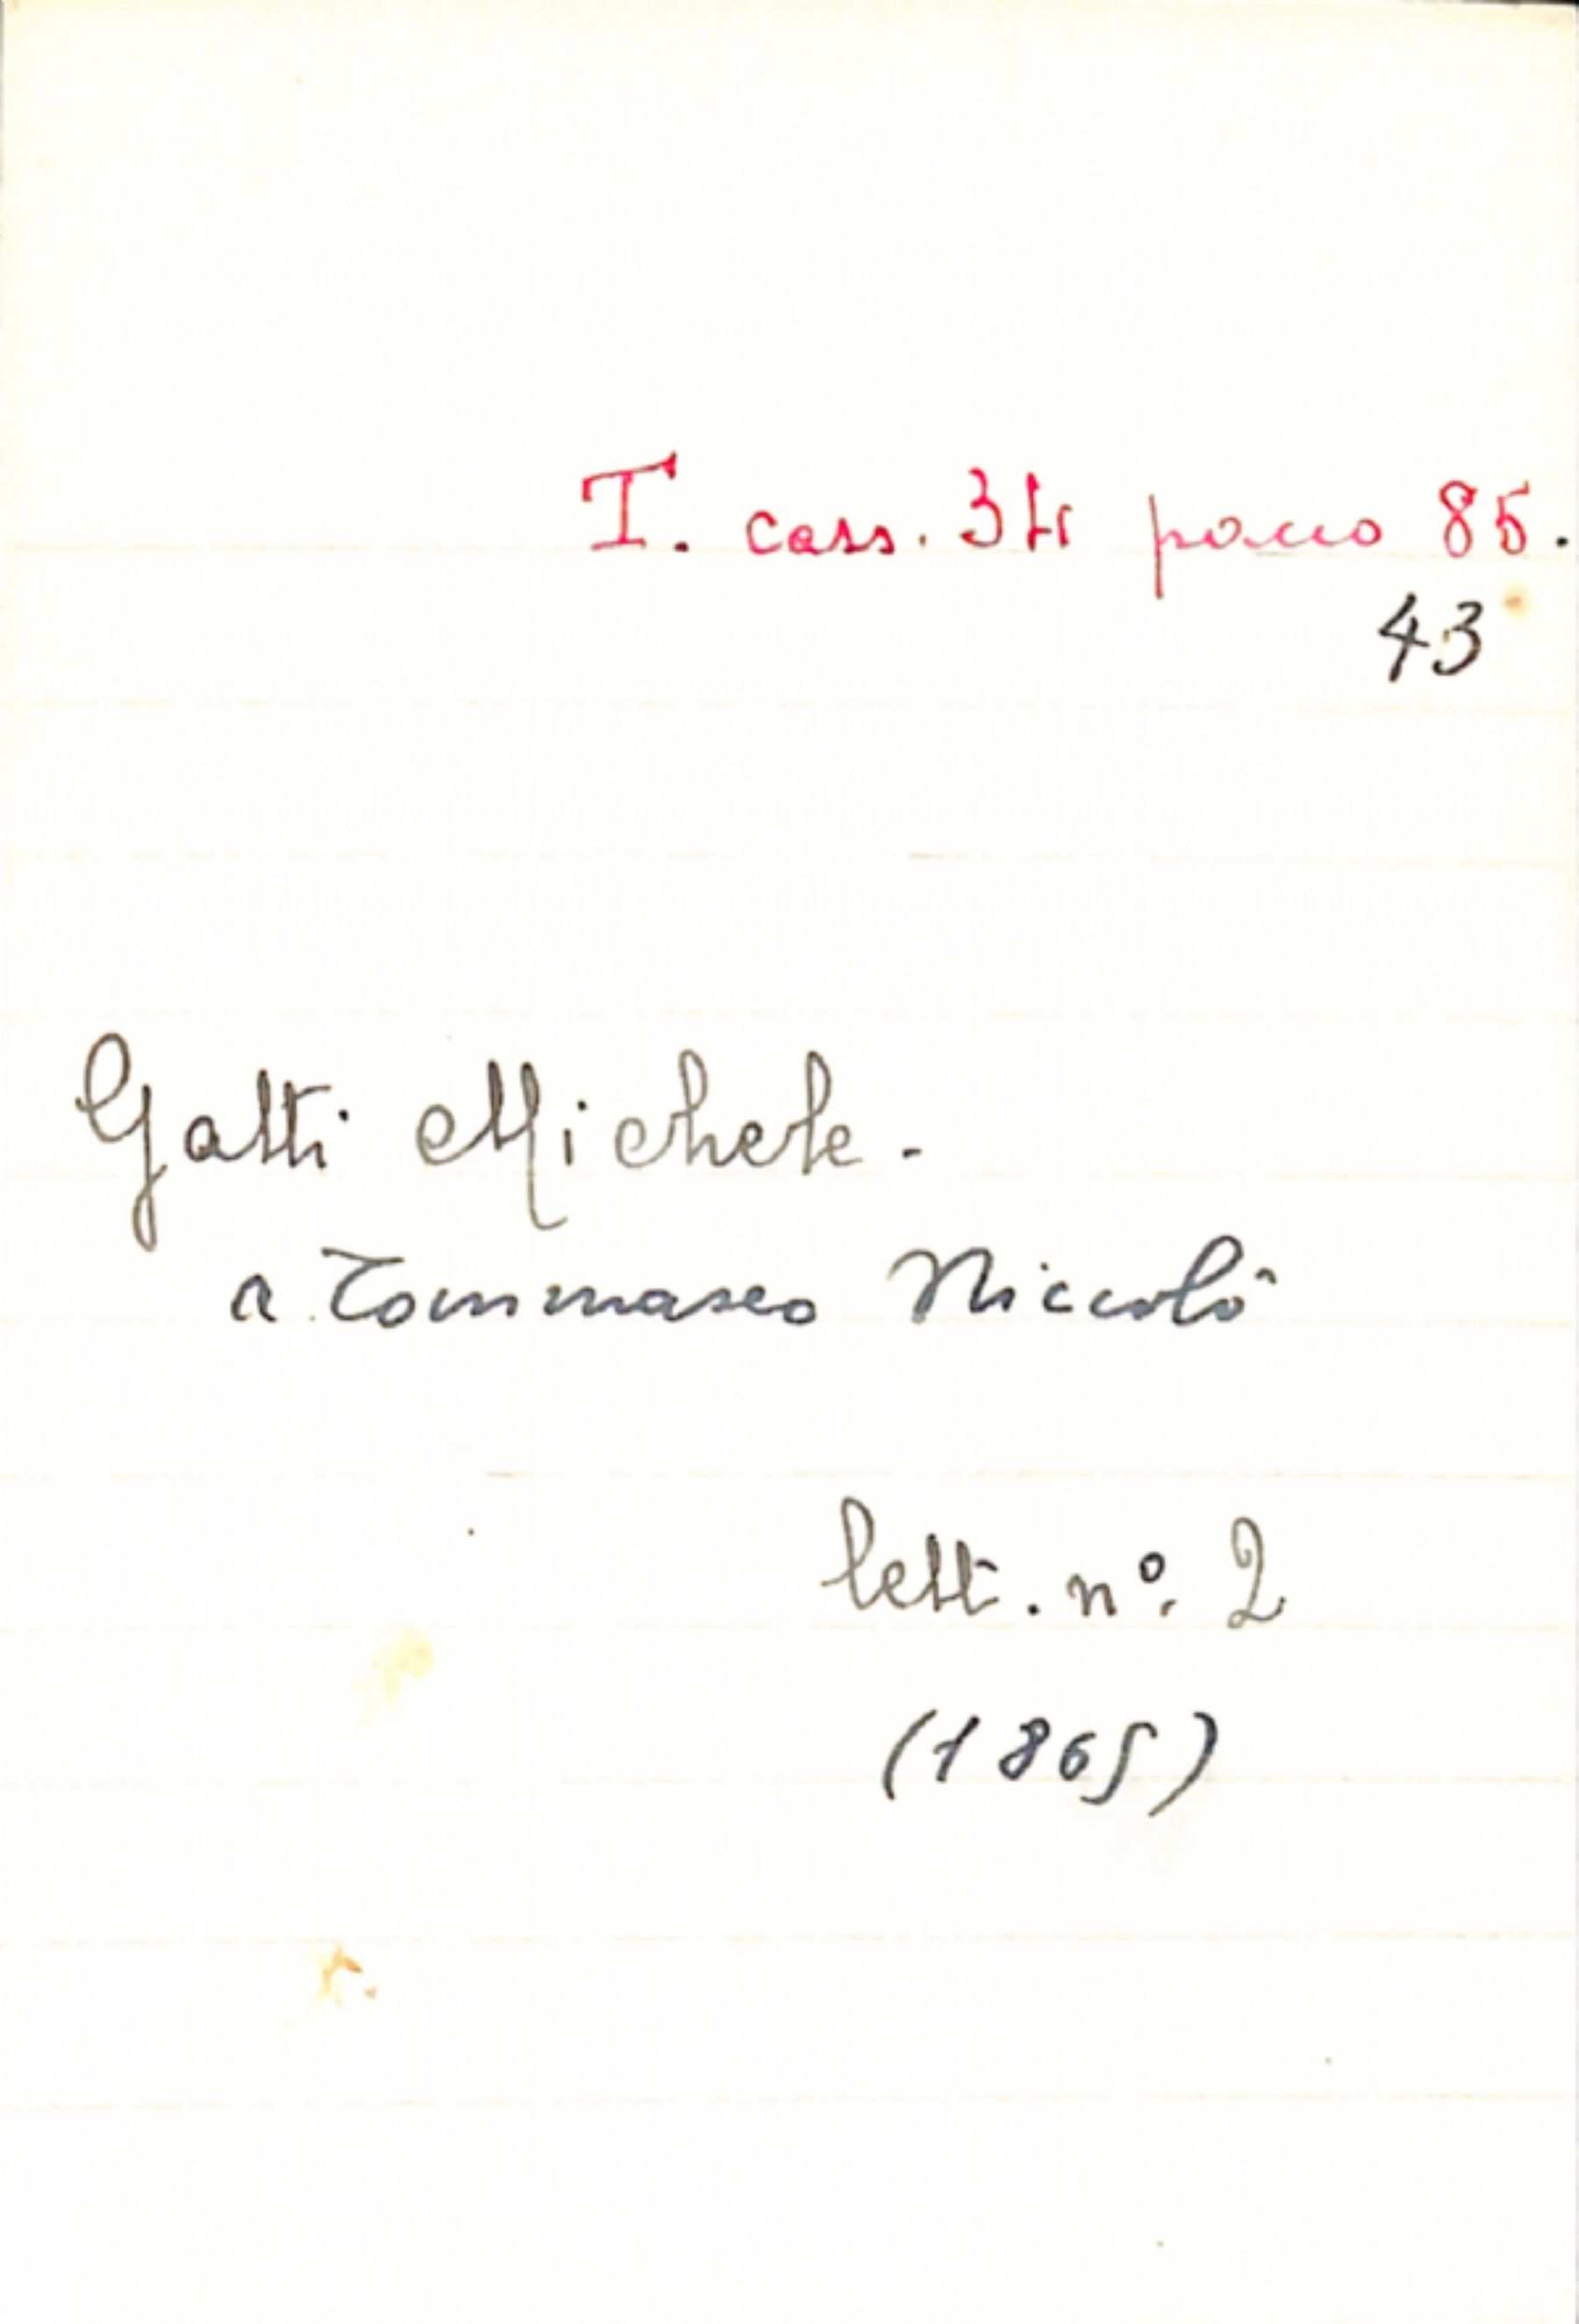 T. cass. 34 pacco 85.
43
Gatti Michele.
a Tommaseo Niccolò
lett. nº. 2
(1865)